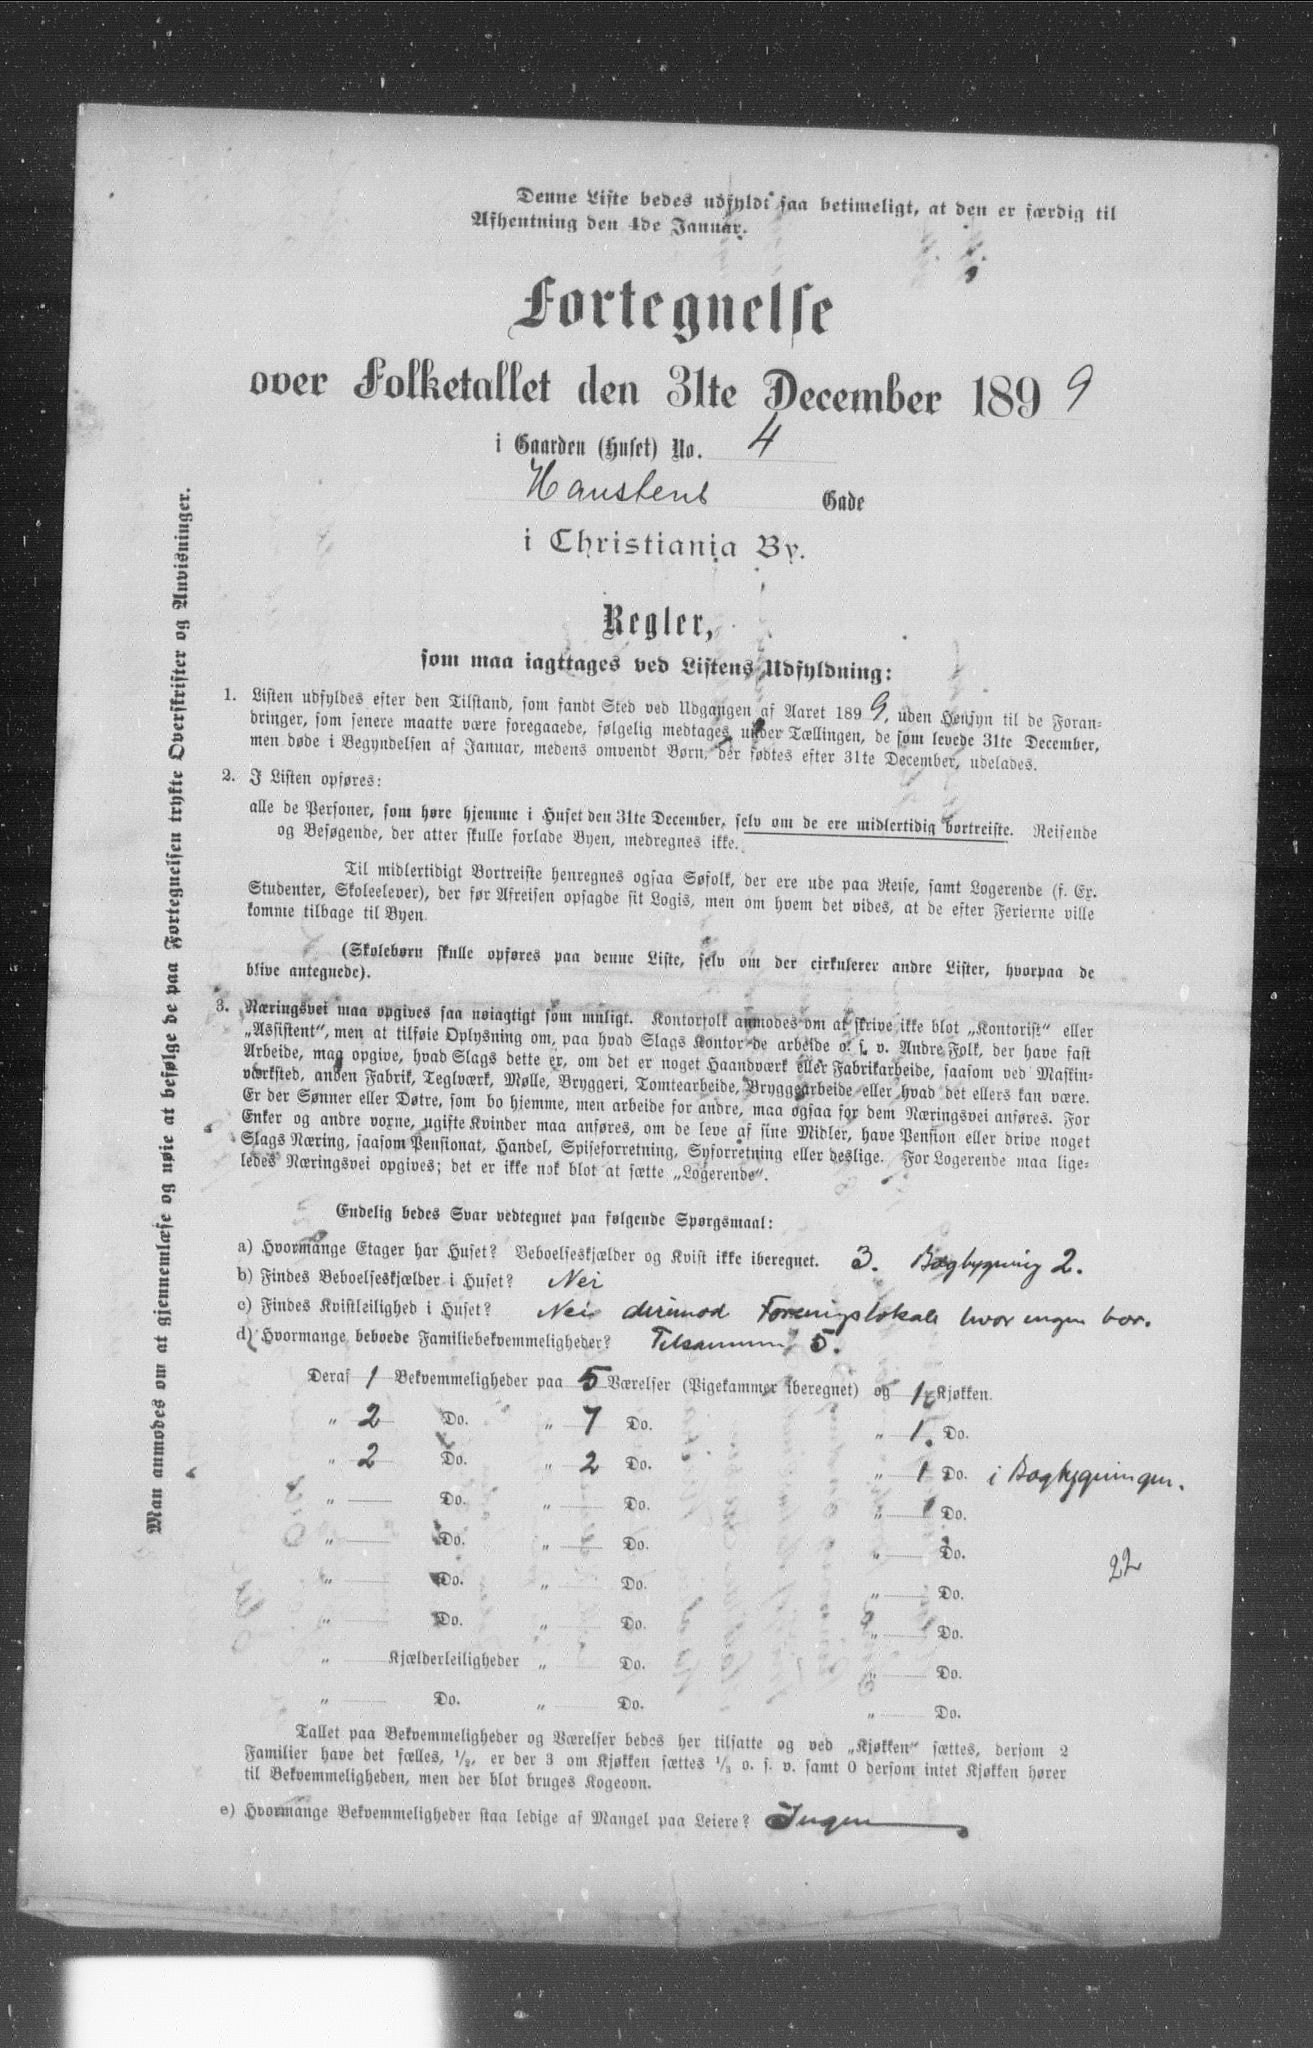 Denne Liste bedes udfyldt saa betimeligt, at den er færdig til
Afhentning den 4de Januar.
Fortegnelse
over Folketallet den 31te December 1899
i Gaarden (Huset) No. 4
Haustens Gade
i Christiania By.
Regler,
som maa iagttages ved Listens Udfyldning:
1. Listen udfyldes efter den Tilstand, som fandt Sted ved Udgangen af Aaret 1899, uden Hensyn til de Foran-
dringer, som senere maatte være foregaaede, følgelig medtages under Tællingen, de som levede 31te December,
men døde i Begyndelsen af Januar, medens omvendt Børn, der fødtes efter 31te December, udelades.
2. I Listen opføres:
alle de Personer, som høre hjemme i Huset den 31te December, selv om de ere midlertidig bortreiste. Reisende
og Besøgende, der atter skulle forlade Byen, medregnes ikke.
Til midlertidigt Bortreiste henregnes ogsaa Søfolk, der ere ude paa Reise, samt Logerende (f. Ex.
Studenter, Skoleelever), der før Afreisen opsagde sit Logis, men om hvem det vides, at de efter Ferierne ville
komme tilbage til Byen.
(Skolebørn skulle opføres paa denne Liste, selv om der cirkulerer andre Lister, hvorpaa de
blive antegnede).
3. Næringsvei maa opgives saa nøiagtigt som muligt. Kontorfolk anmodes om at skrive ikke blot „Kontorist“ eller
„Assistent“, men at tilføie Oplysning om, paa hvad Slags Kontor de arbeide o. s. v. Andre Folk, der have fast
Arbeide, maa opgive, hvad Slags dette er, om det er noget Haandværk eller Fabrikarbeide, saasom ved Maskin-
værksted, anden Fabrik, Teglværk, Mølle, Bryggeri, Tomtearbeide, Bryggearbeide eller hvad det ellers kan være.
Er der Sønner eller Døtre, som bo hjemme, men arbeide for andre, maa ogsaa for dem Næringsvei anføres. For
Enker og andre voxne, ugifte Kvinder maa anføres, om de leve af sine Midler, have Pension eller drive noget
Slags Næring, saasom Pensionat, Handel, Spiseforretning, Syforretning eller deslige. For Logerende maa lige-
ledes Næringsvei opgives; det er ikke nok blot at sætte „Logerende“.
Endelig bedes Svar vedtegnet paa følgende Spørgsmaal:
a) Hvormange Etager har Huset? Beboelseskjælder og Kvist ikke iberegnet. 3. Bagbygning 2.
b) Findes Beboelseskjælder i Huset? Nei
c) Findes Kvistleilighed i Huset? Nei derimod Foreningslokale hvor ingen bor.
d) Hvormange beboede Familiebekvemmeligheder? Tilsammen 5.
Deraf 1 Bekvemmeligheder paa 5 Værelser (Pigekammer iberegnet) og 1 Kjøkken.
„ 2 Do. „ 7 Do. „ 1. Do.
„ 2 Do. „ 2 Do. „ 1 Do. i Bagbygningen.
„ Do. „ Do. „ Do.
„ Do. „ Do. „ Do.
22
„ Do. „ Do. „ Do.
„ Do. „ Do. „ Do.
„ Kjælderleiligheder „ Do. „ Do.
„ Do. „ Do. „ Do.
Tallet paa Bekvemmeligheder og Værelser bedes her tilsatte og ved „Kjøkken“ sættes, dersom 2
Familier have det fælles, 1/2, er der 3 om Kjøkken sættes 1/3 o. s. v. samt 0 dersom intet Kjøkken hører
til Bekvemmeligheden, men der blot bruges Kogeovn.
e) Hvormange Bekvemmeligheder staa ledige af Mangel paa Leiere? Ingen
Man anmodes om at gjennemlæse og nøie at befølge de paa Fortegnelsen trykte Overskrifter og Anvisninger.